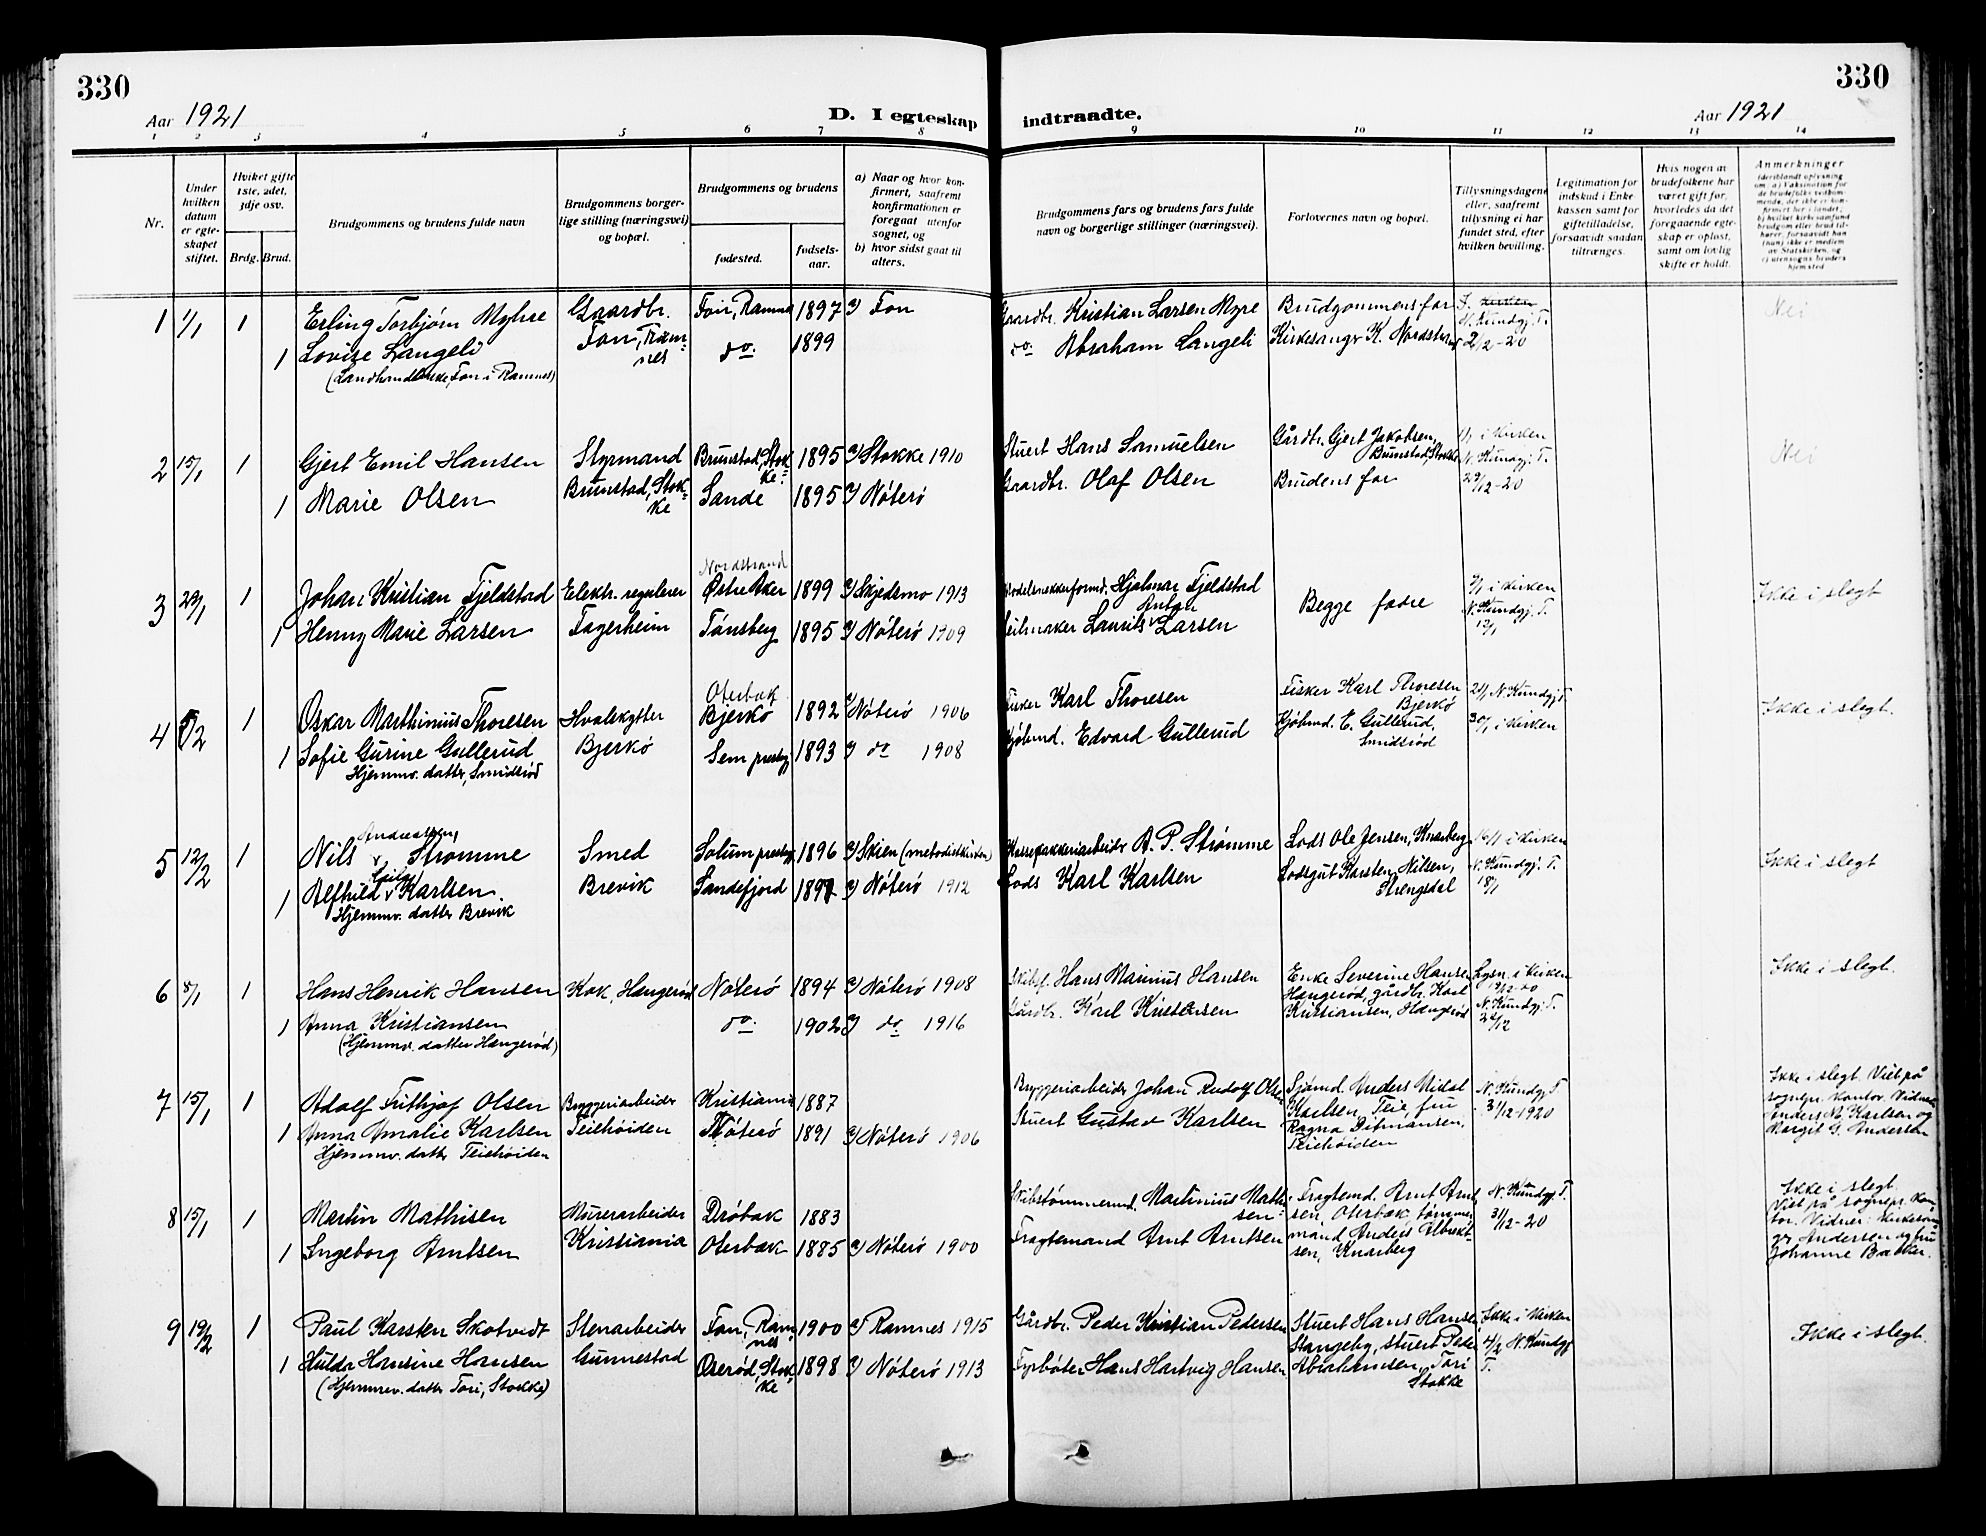 330
330
Aar 1921
D. I egteskap indtraadte.
Aar 1921
1 2 3 4 5 6 7 8 9 10 11 12 13 14
Nr.
Under hvilken datum er egteskapet stiftet.
Hviket gifte 1ste, 2det, 3dje osv.
Brdg. Brud.
Brudgommens og brudens fulde navn
Brudgommens borgerlige stilling (næringsvei) og bopæl.
Brudgommens og brudens
fødested.
fødselsaar.
a) Naar og hvor konfirmert, saafremt konfirmationen er foregaat utenfor sognet, og
b) hvor sidst gaat til alters.
Brudgommens fars og brudens fars fulde navn og borgerlige stillinger (næringsvei).
Forlovernes navn og bopæl.
Tillysningsdagene eller, saafremt tillysning ei har fundet sted, efter hvilken bevilling.
Legitimation for indskud i Enkekassen samt for giftetilladelse, forsaavidt saadan tiltrænges.
Hvis nogen av brudefolkene har været gift før, hvorledes da det foregaaende egteskap er opløst, samt om lovlig skifte er holdt.
Anmerkninger
1 1/1 1 Erling Torbjørn Myhre Gaardbr. Fon, Ramnes 1897 Fon Gaardbr. Kristian Larsen Myre Brudgommens far Nei
1 Lovise Langeli Fon, Ramnes do. 1899 do Abraham Langeli Kirkesanger K. N. Kundgj. T. 2/12-20
(Landhandlerske, Fon i Ramnes)
2 15/1 1 Gjert Emil Hansen Styrmand Brunstad, Stokke. 1895 Stokke 1910 Stuert Hans Samuelsen Gårdbr. Gjert Jakobsen, Brunstad, Stokke i Kirken Nei
1 Marie Olsen Brunstad, Stokke Sande 1895 Nøterø Gaardbr. Olaf Olsen Brudens far N. Kundgj. T. 29/12-20
3 23/1 1 Johan Kristian Fjeldstad Elektr. regulerer Nordstrand Østre Aker 1899 Skjedsmo 1913 Modelsnekkerformd. Hjalmar Fjeldstad Begge fædre 9/1 i Kirken Ikke i slegt
1 Henny Marie Larsen Fagerheim Tønsberg 1895 Nøterø 1909 Seilmaker Laurits Anton Larsen N. Kundgj. T. 13/1
4 5/2 1 Oskar Marthinius Thoresen Hvalskytter Oterbæk Bjerkø 1892 Nøterø 1906 Fisker Karl Thoresen Fisker Karl Thoresen Bjerkø N. Kundgj. T. Ikke i slegt.
1 Sofie Gurine Gullerud Bjerkø Sem prestegj 1893 do 1908 Kjøbmd. Edvard Gullerud Kjøbmd. E. Gullerud, Smidsrød 30/1 i Kirken
Hjemmv. datter, Smidsrød
5 12/2 1 Nils Andreassen Strømme Smed Solum prestegj 1896 Skien (metodistkirken) A. P. Strømme Lods Ole Jensen, Knarberg 16/1 i Kirken Ikke i slegt
1 Alfhild Karlsen Brevik Sandefjord 1897 Nøterø 1912 Lods Karl Karlsen Lodsgut Karsten Nilsen, Strengsdal N. Kundgj. T. 18/1
Hjemmv. datter Brevik
6 8/1 1 Hans Henrik Hansen Kok, Hængerød Nøterø 1894 Nøterø 1908 Hans Marinius Hansen Enke Severine Hansen Hængerød, gårdbr. Karl Kristiansen, Hængerød Lysn. i Kirken N. Kundgj. T. Ikke i slegt.
1 Anna Kristiansen do. 1902 do 1916 Gårdbr. Karl Kristiansen
(Hjemmv. datter Hængerød)
7 15/1 1 Adolf Frithjof Olsen Bryggeriarbeider Kristiania 1887 Bryggeriarbeider Johan Rudolf Olsen Sjømd. Anders Vidal Karlsen, Teie, fru Ragna Ditmansen, Teiehøiden N. Kundgj. T. 31/12-1920 Ikke i slegt. Viet på sognepr. kontor. Vidner: Anders M. Karlsen og Margit G. Andersen
1 Anna Amalie Karlsen Teiehøiden Nøterø 1891 Nøterø 1906 Stuert Gustav Karlsen
Hjemmv. datter Teiehøiden
8 15/1 1 Martin Mathisen Murerarbeider Drøbak 1883 Skibstømmermd. Martinius Mathisen. Fragtemd. Arnt Arntsen, Oterbæk, tømmermand Anders Albrektsen, Knarberg N. Kundgj. T. 31/12-20 Ikke i slegt. Viet på sognepr. kontor. Vidner: kirkesanger Andersen og fru Johanne Bakken.
1 Ingeborg Arntsen Kristiania Oterbæk 1885 Nøterø 1900 Fragtemand Arnt Arntsen
9 19/2 1 Paul Karsten Skotvedt Stenarbeider Fon, Ramnes 1900 Ramnes 1915 Gårdbr. Peder Kristian Pedersen Stuert Hans Hansen Stangeby, stuert Peder Abrahamsen, Tori Stokke Ikke i Kirken 4/2 N. Kundgj. T. Ikke i slegt.
1 Hulda Hansine Hansen Gunnestad Oserød, Stokke 1898 Nøterø 1913 Fyrbøter Hans Hartvig Hansen
(Hjemmev. datter Tori, Stokke)